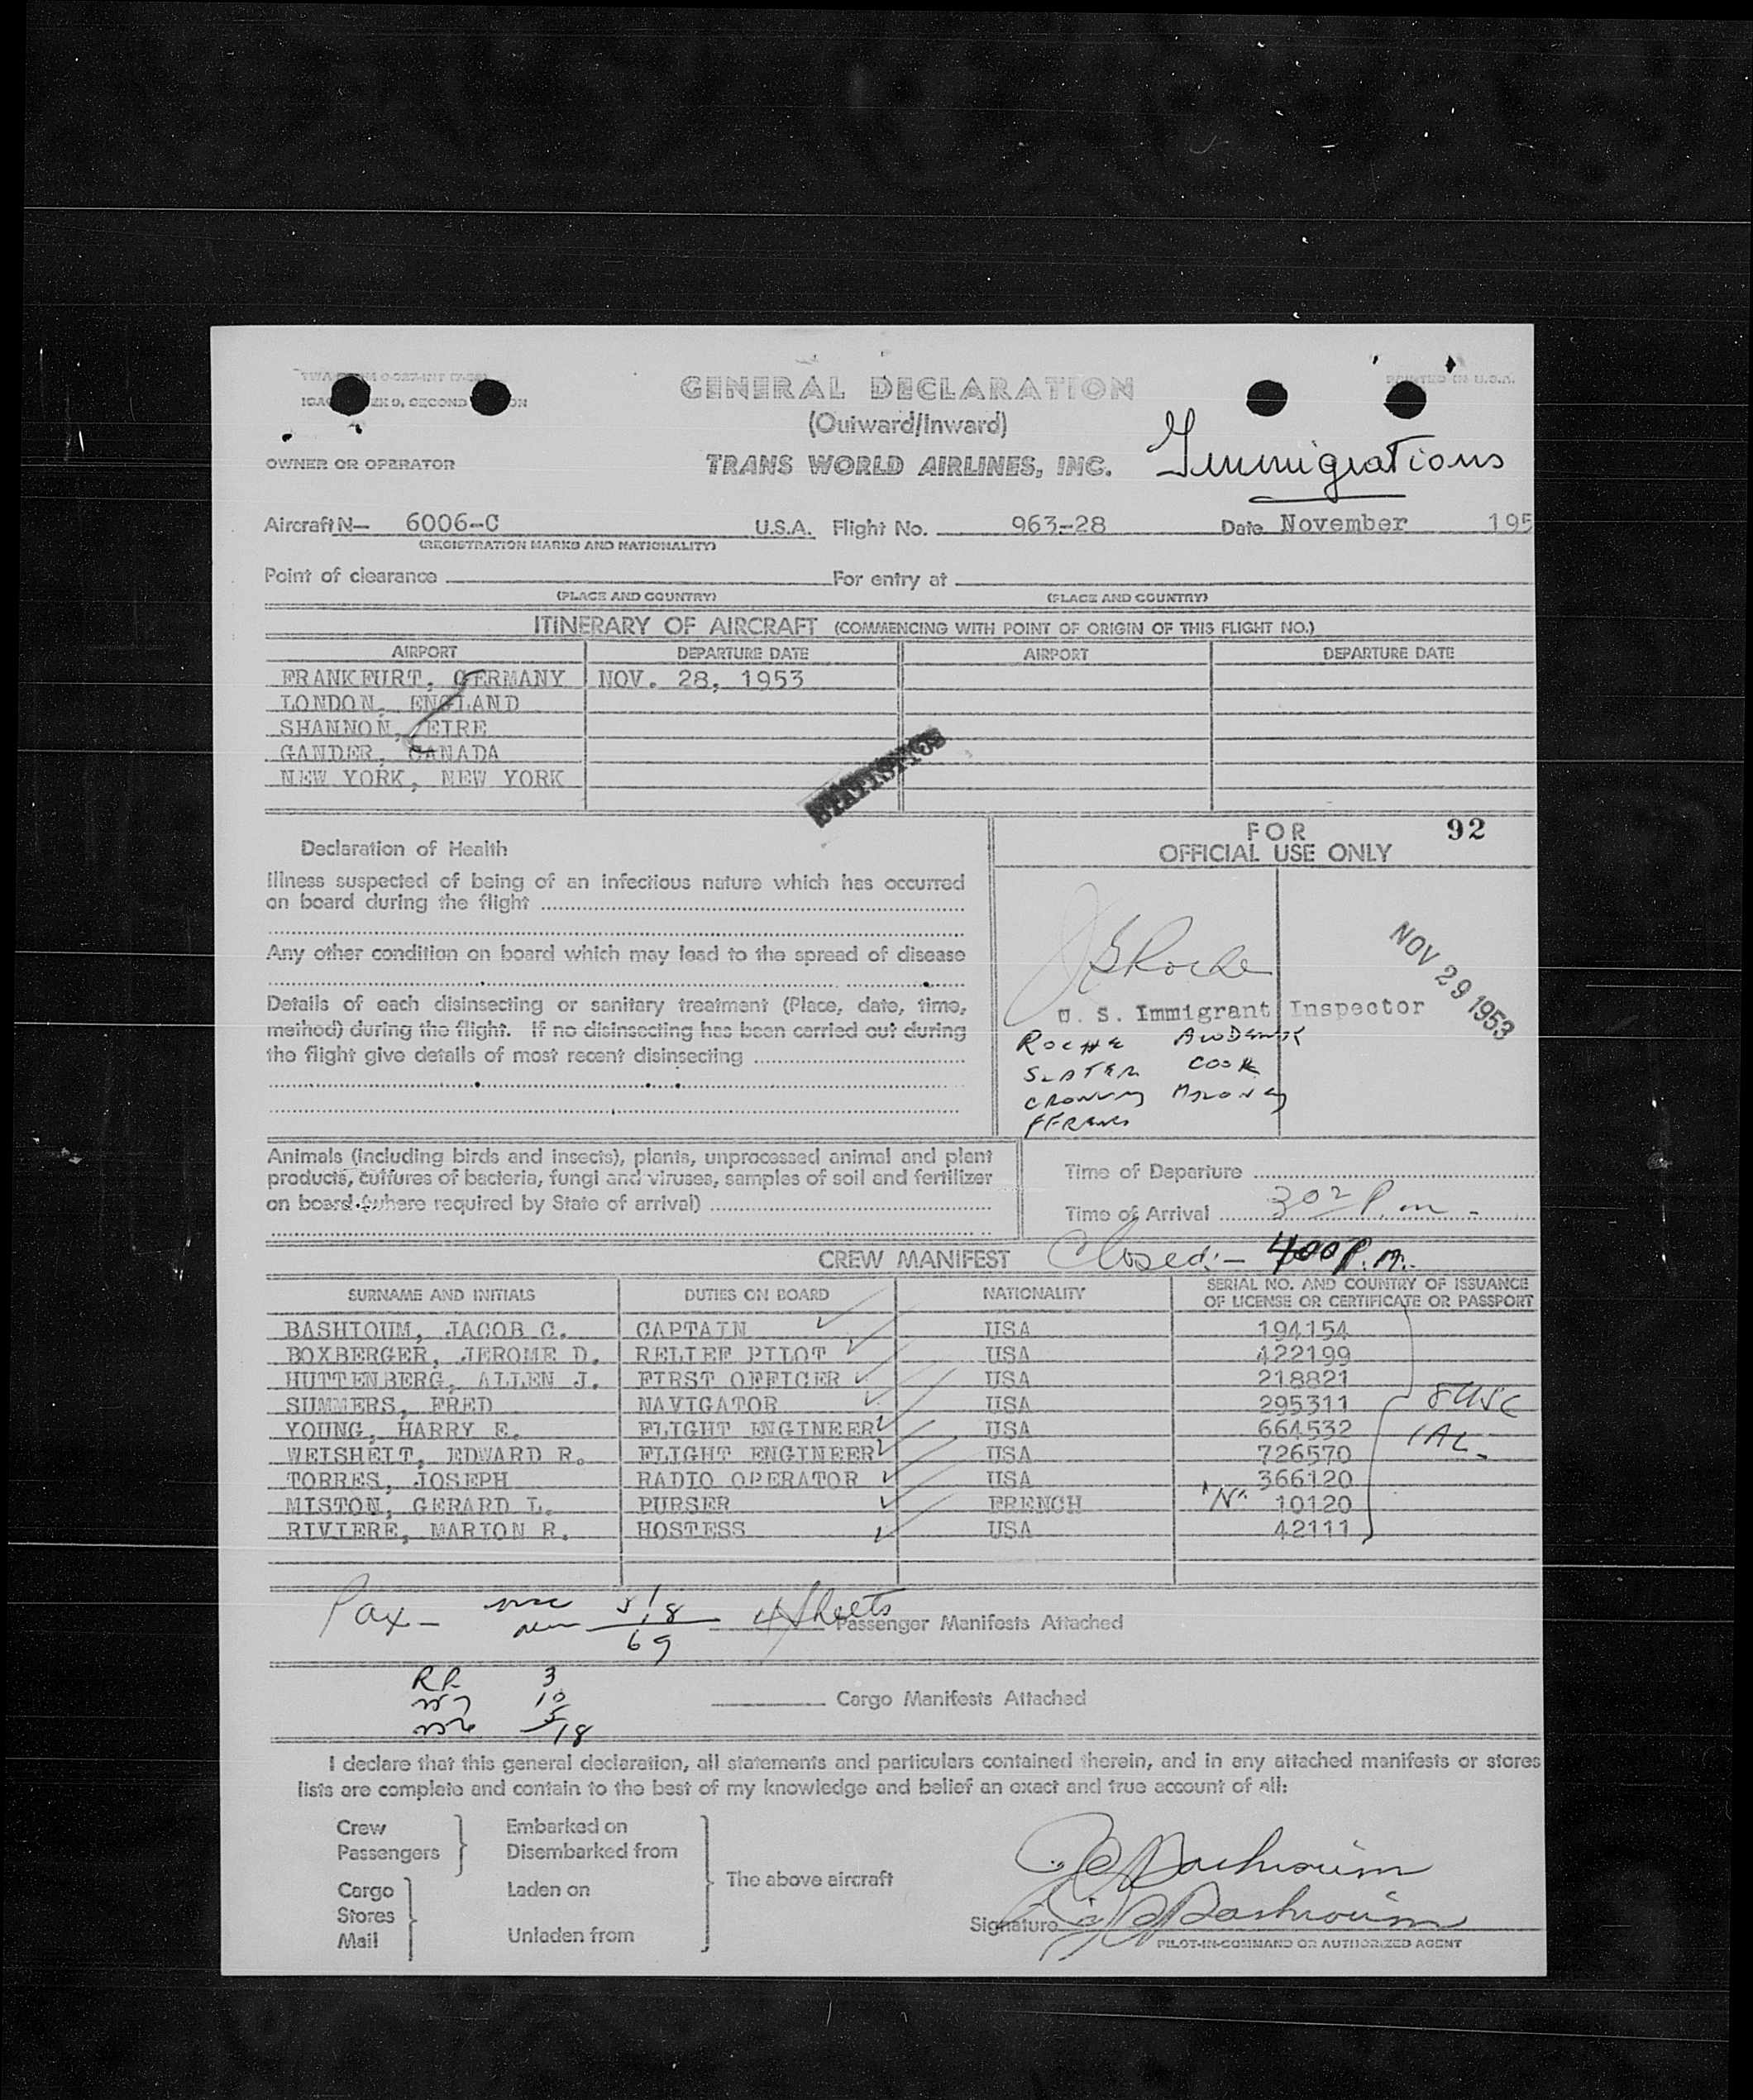 GENERAL DECLARATION
PRINTED IN U.S.A.
(Outward/Inward)
OWNER OR OPERATOR
TRANS WORLD AIRLINES, INC.
Immigrations
Aircraft N— 6006-C U.S.A. Flight No. 963-28 Date November 195
(REGISTRATION MARKS AND NATIONALITY)
Point of clearance For entry at
(PLACE AND COUNTRY) (PLACE AND COUNTRY)
ITINERARY OF AIRCRAFT (COMMENCING WITH POINT OF ORIGIN OF THIS FLIGHT NO.)
AIRPORT DEPARTURE DATE AIRPORT DEPARTURE DATE
FRANKFURT, GERMANY NOV. 28, 1953
LONDON, ENGLAND
SHANNON, EIRE
GANDER, CANADA
NEW YORK, NEW YORK
STATISTICS
Declaration of Health
Illness suspected of being of an infectious nature which has occurred
on board during the flight
Any other condition on board which may lead to the spread of disease
Details of each disinsecting or sanitary treatment (Place, date, time,
method) during the flight. If no disinsecting has been carried out during
the flight give details of most recent disinsecting
FOR 92
OFFICIAL USE ONLY
NOV 29 1953
U. S. Immigrant Inspector
ROCHE
SLATER COOK
Animals (including birds and insects), plants, unprocessed animal and plant
products, cultures of bacteria, fungi and viruses, samples of soil and fertilizer
on board (where required by State of arrival)
Time of Departure
Time of Arrival 302 P.m.
Closed:- 400 P.M.
CREW MANIFEST
SURNAME AND INITIALS DUTIES ON BOARD NATIONALITY SERIAL NO. AND COUNTRY OF ISSUANCE OF LICENSE OR CERTIFICATE OR PASSPORT
BASHIOUM, JACOB C. CAPTAIN USA 194154
BOXBERGER, JEROME D. RELIEF PILOT USA 422199
HUTTENBERG, ALLEN J. FIRST OFFICER USA 218821
SUMMERS, FRED NAVIGATOR USA 295311
YOUNG, HARRY E. FLIGHT ENGINEER USA 664532
WEISHEIT, EDWARD R. FLIGHT ENGINEER USA 726570
TORRES, JOSEPH RADIO OPERATOR USA 366120
MISTON, GERARD L. PURSER FRENCH "N" 10120
RIVIERE, MARION R. HOSTESS USA 42111
8 USC
1 AL
Pax- 51
18
69
4 Sheets Passenger Manifests Attached
3
10
5
18
Cargo Manifests Attached
I declare that this general declaration, all statements and particulars contained therein, and in any attached manifests or stores
lists are complete and contain to the best of my knowledge and belief an exact and true account of all:
Crew Embarked on
Passengers Disembarked from
The above aircraft
Cargo Laden on
Stores
Mail Unladen from
Signature J C Bashioum
PILOT-IN-COMMAND OR AUTHORIZED AGENT